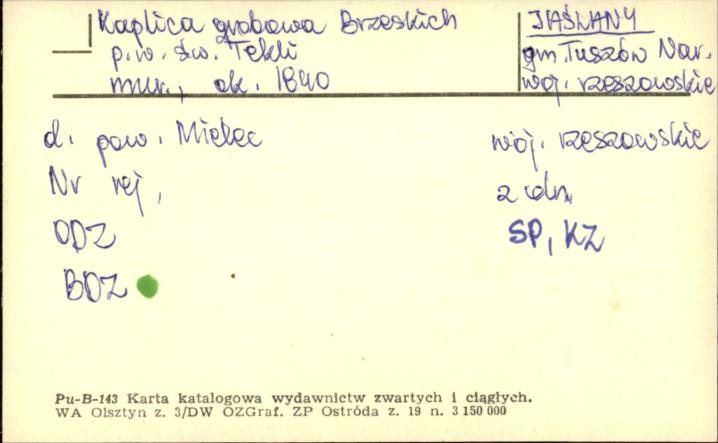 Kaplica grobowa Brzeskich
p.w. św. Tekli
mur., ok. 1840
JAŚLANY
gm. Tuszów Nar.
woj. rzeszowskie
d. pow. Mielec
woj. rzeszowskie
Nr rej,
z dn,
ODZ
SP, KZ
BDZ
Pu-B-143 Karta katalogowa wydawnictw zwartych i ciągłych.
WA Olsztyn z. 3/DW OZGraf. ZP Ostróda z. 19 n. 3 150 000